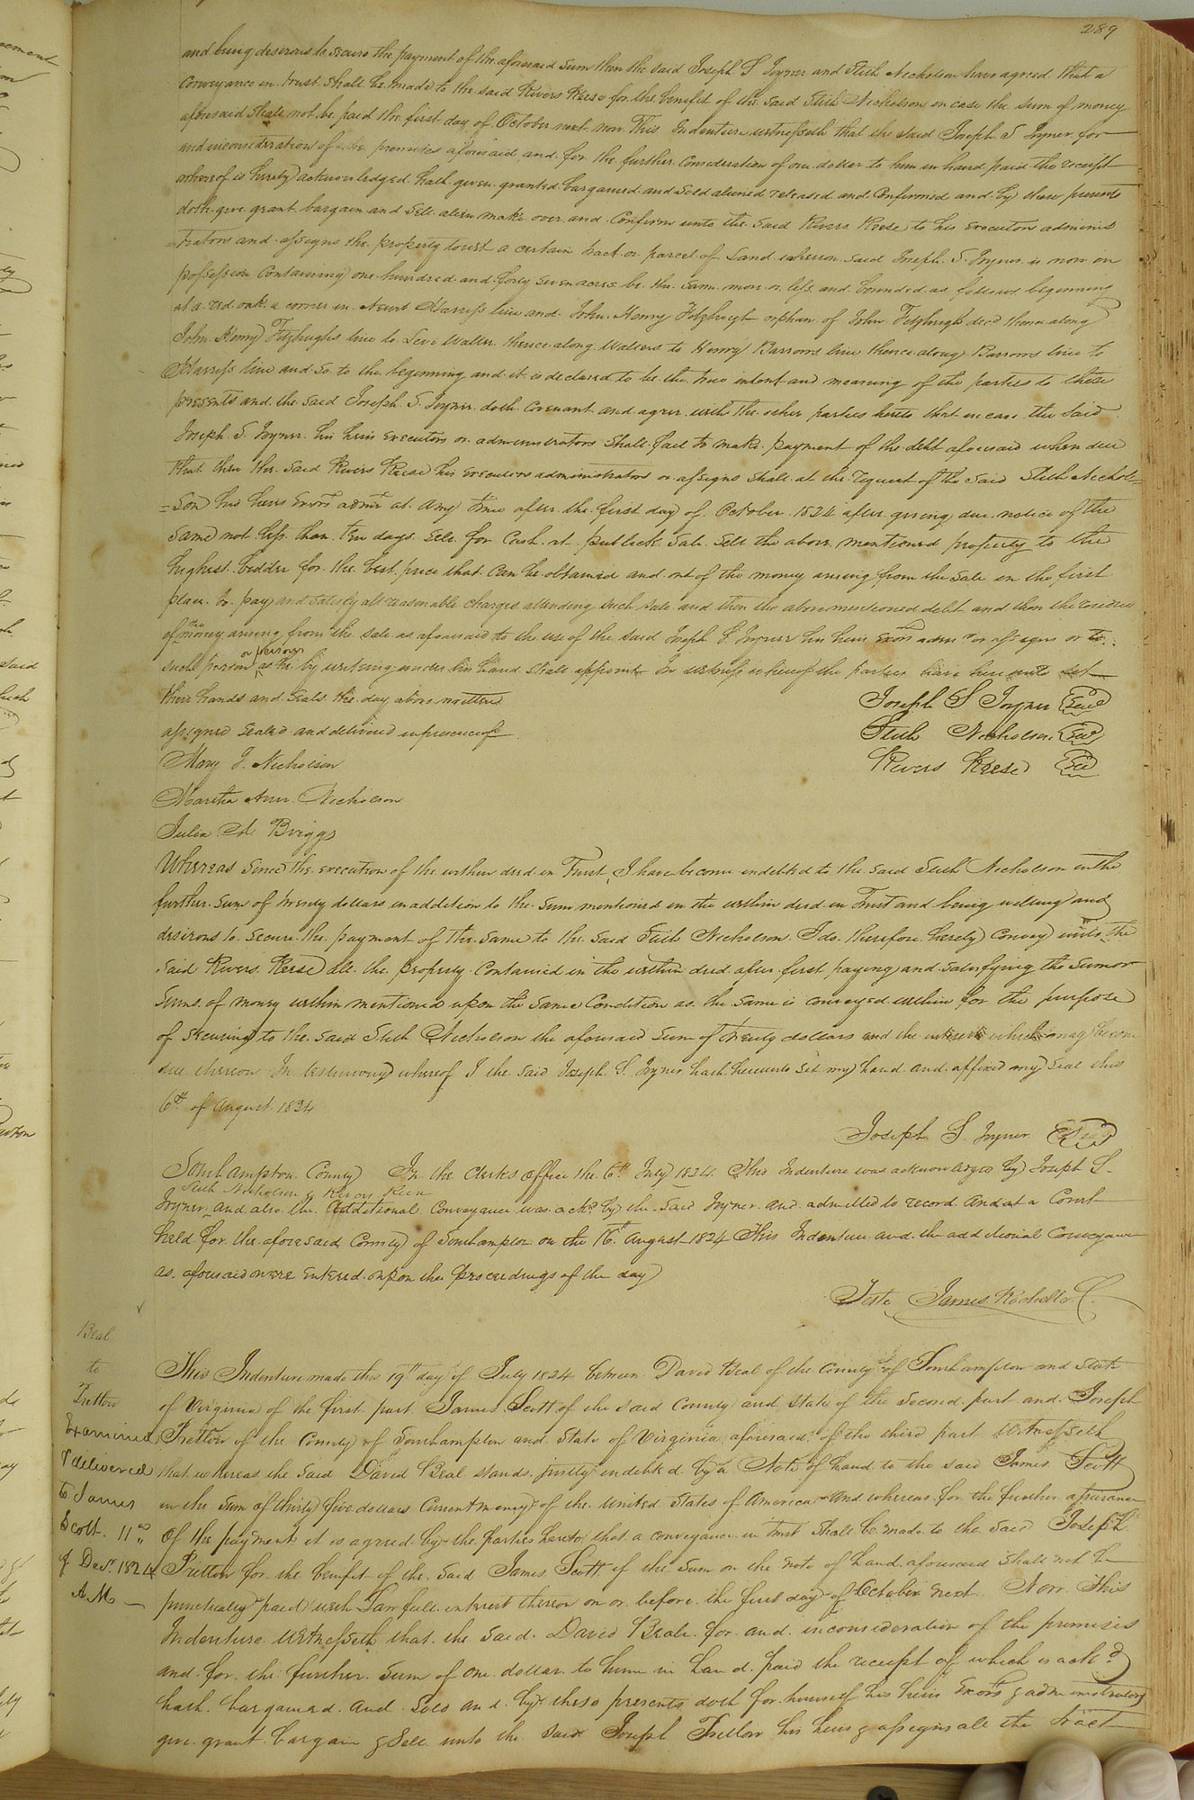 289
and being desirous to secure the payment of the aforesaid sum then the said Joseph S Joyner and Stith Nicholson have agreed that a
conveyance in trust shall be made to the said Rivers Reese for the benefit of the said Stith Nicholson in case the sum of money
aforesaid shall not be paid the first day of October next now This Indenture witnesseth that the said Joseph S Joyner for
and inconsideration of the premises aforesaid and for the further consideration of one dollar to him in hand paid the receipt
whereof is hereby acknowledged hath given granted bargained and sold aliened released and confirmed and by these presents
doth give grant bargain and sell alien make over and confirm unto the said Rivers Reese to his executors adminis
trators and assigns the property towit a certain tract or parcel of Land whereon said Joseph S. Joyner is now on
possession containing one hundred and forty seven acres be the same more or less and bounded as follows beginning
at a red oak a corner in Harriss line and John Henry Fitzhugh orphan of John Fitzhugh decd thence along
John Henry Fitzhughs line to Levi Waller thence along Wallers to Henry Barrows line thence along Barrows line to
Harriss line and so to the beginning and it is declared to be the true intent and meaning of the parties to these
presents and the said Joseph S. Joyner doth covenant and agree with the other parties hereto that in case the said
Joseph S. Joyner his heirs executors or administrators shall fail to make payment of the debt aforesaid when due
that then the said Rivers Reese his executors administrators or assigns shall at the request of the said Stith Nichol=
=son his heirs Exors admrs at any time after the first day of October 1824 after giving due notice of the
same not less than ten days sell for Cash at publick sale sell the above mentioned property to the
highest bidder for the best price that can be obtained and out of the money arising from the sale in the first
place to pay and satisfy all reasonable charges attending such sale and then the above mentioned debt and then the residue
of the money arising from the sale as aforesaid to the use of the said Joseph S Joyner his heirs Exors admrs or assigns or to
such person or persons as he by writing under his hand shall appoint In witness whereof the parties have hereunto set
their hands and seals the day above written
Joseph S Joyner Seal
assigned sealed and delivered in presence of
Stith Nicholson Seal
Mary J. Nicholson
Rivers Reese Seal
Martha Ann Nicholson
Julia A Briggs
Whereas since the execution of the within deed in Trust, I have become indebted to the said Stith Nicholson in the
further sum of twenty dollars in addition to the sum mentioned in the within deed in Trust and being willing and
desirous to secure the payment of the same to the said Stith Nicholson I do therefore hereby convey unto the
said Rivers Reese all the property contained in the within deed after first paying and satisfying the sum or
sums of money within mentioned upon the same Condition as the same is conveyed within for the purpose
of securing to the said Stith Nicholson the aforesaid sum of twenty dollars and the interest which may become
due thereon In testimony whereof I the said Joseph S. Joyner hath hereunto set my hand and affixed my seal this
6th of August 1824
Joseph S. Joyner Seal
Southampton County In the Clerks office the 6th July 1824 This Indenture was acknowledged by Joseph S.
Stith Nicholson & Rivers Reese
Joyner and also the additional Conveyance was ackd by the said Joyner and admitted to record and at a Court
held for the aforesaid County of Southampton on the 16th August 1824 This Indenture and the additional Conveyance
as aforesaid were entered upon the proceedings of the day
Teste James Rochelle C.
Beal
to
Pretlow
Examined
& delivered
to James
Scott 11th
of Decr 1824
AM
This Indenture made this 19th day of July 1824 between David Beal of the County of Southampton and State
of Virginia of the first part James Scott of the said County and State of the second part and Joseph
Pretlow of the County of Southampton and State of Virginia aforesaid of the third part Witnesseth
that whereas the said David Beal stands justly indebted by a Note of hand to the said James Scott
in the sum of thirty five dollars Current money of the United States of America And whereas for the further assurance
of the payment it is agreed by the parties hereto that a conveyance in trust shall be made to the said Joseph
Pretlow for the benefit of the said James Scott if the sum on the note of hand aforesaid shall not be
punctually paid with Lawfull interest thereon on or before the first day of October next Now This
Indenture Witnesseth that the said David Beale for and inconsideration of the premises
and for the further sum of one dollar to him in hand paid the receipt of which is ackd
hath bargained and sold and by these presents doth for himself his heirs Exors & administrators
give grant bargain & sell unto the said Joseph Pretlow his heirs & assigns all the tract